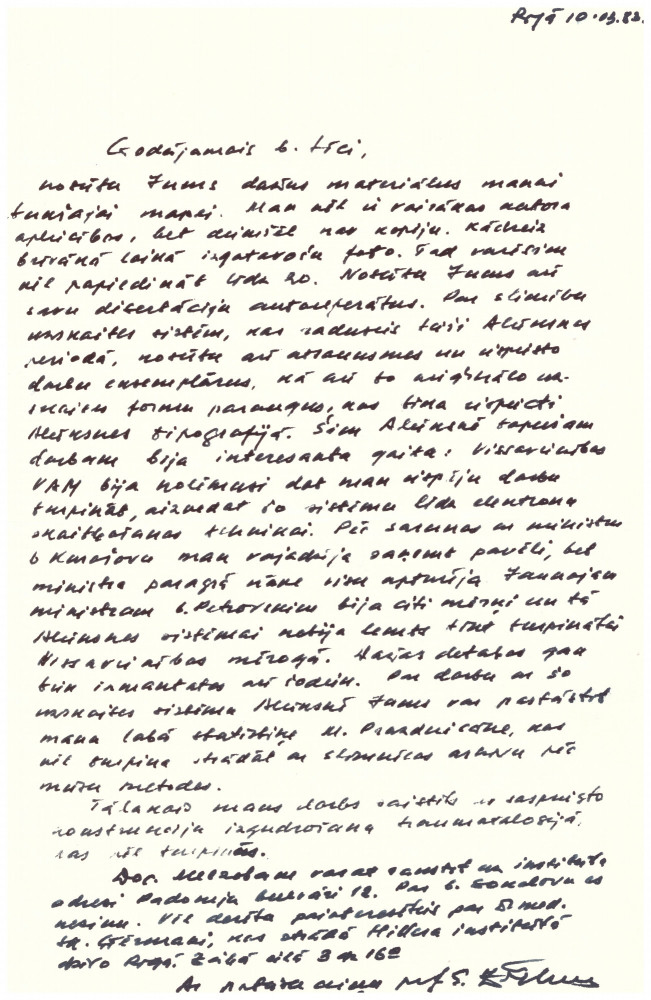 Rīgā 10.03.83.
Godājamais b. Līci,
nosūtu Jums dažus materiālus manai
turiajai mapei. Man vēl ir vairākas autora
apliecības, bet diemžēl nav kopiju. Kādreiz
brīvākā laikā izgatavošu foto. Tad varēsim
vēl papiedināt līdz 20. Nosūtu Jums arī
savu disertāciju autoreferātus. Par slimību
uzskaites sistēm, kas radusies tieši Alūksnes
periodā, nosūtu arī atsauksmes un iespiesto
darbu eksemplārus, kā arī to oriģinālo uz-
skaites formu paraugus, kas tika iespiesti
Alūksnes tipogrāfijā. Šim Alūksnē
darbam bija interesanta gaita: Vissavienības
VAM bija nolēmusi dot man iespēju darbu
turpināt, aizvedot šo sistēmu līdz elektronu
skaitļošanas tehnikai. Pēc sarunas ar ministru
b Kurašovu man vajadzēja saņemt pavēli, bet
ministra pāragrā nāve visu apturēja Jaunajam
ministram b. Petrovskim bija citi mērķi un tā
Alūksnes sistēmai nebija lemts tikt turpinātai
Vissavienības mērogā. Dažas detaļas gan
tiek izmantotas arī šodien. Par darbu ar šo
uzskaites sistēmu Alūksnē Jums var pastāstīt
mana labā statistiķe M. Prazdničāne, kas
vēl turpina strādāt ar slimnīcas arhīvu pēc
mūsu metodes.
Tālākais mans darbs saistīts ar saspriegto
konstrukciju izgudrošanu traumatoloģijā,
kas vēl turpinās.
Doc. varat rakstīt uz institūta
adresi Padomju bulvārī 12. Par b. Sondoru es
nezinu. Vēl derētu painteresēties par med.
zk. Gērmani, kas strādā Hillera institūtā
dzīvo Rīgā. Zaļā ielā 3 dz 16
Ar patiesu cieņu prof.